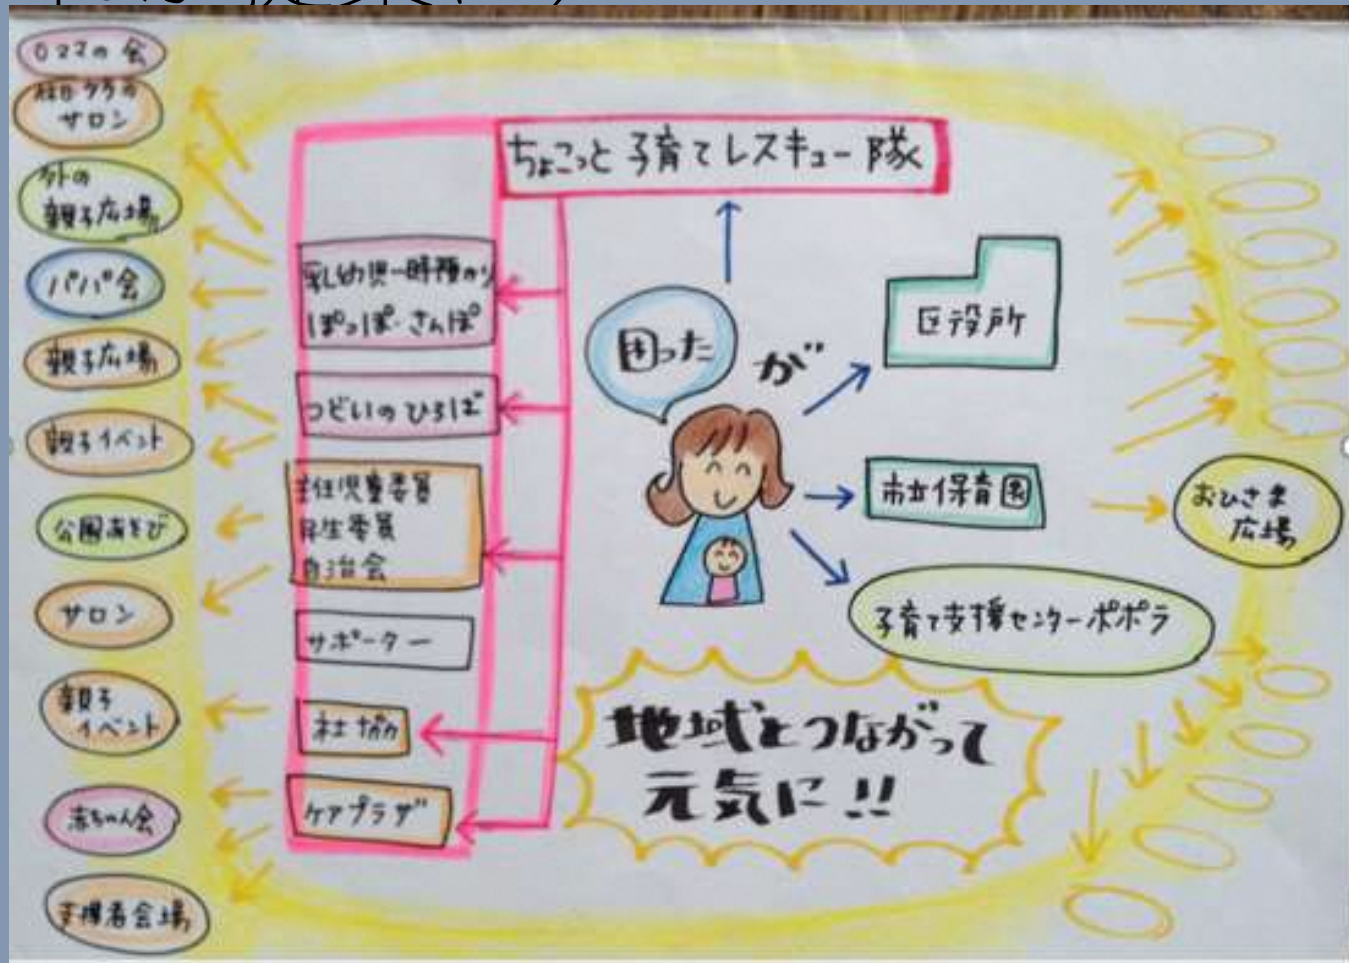 0ママの会
サロン
外の
親子広場
パパ会
親子広場
親子イベント
公園あそび
サロン
親子
イベント
赤ちゃん会
支援者会場
ちょこっと子育てレスキュー隊
乳幼児一時預かり
ぽっぽ・さんぽ
つどいのひろば
主任児童委員
民生委員
自治会
サポーター
社協
ケアプラザ
困った
が
区役所
市立保育園
子育て支援センターポポラ
おひさま
広場
地域とつながって
元気に!!